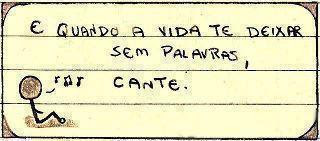 E QUANDO A VIDA TE DEIXAR
SEM PALAVRAS,
CANTE.